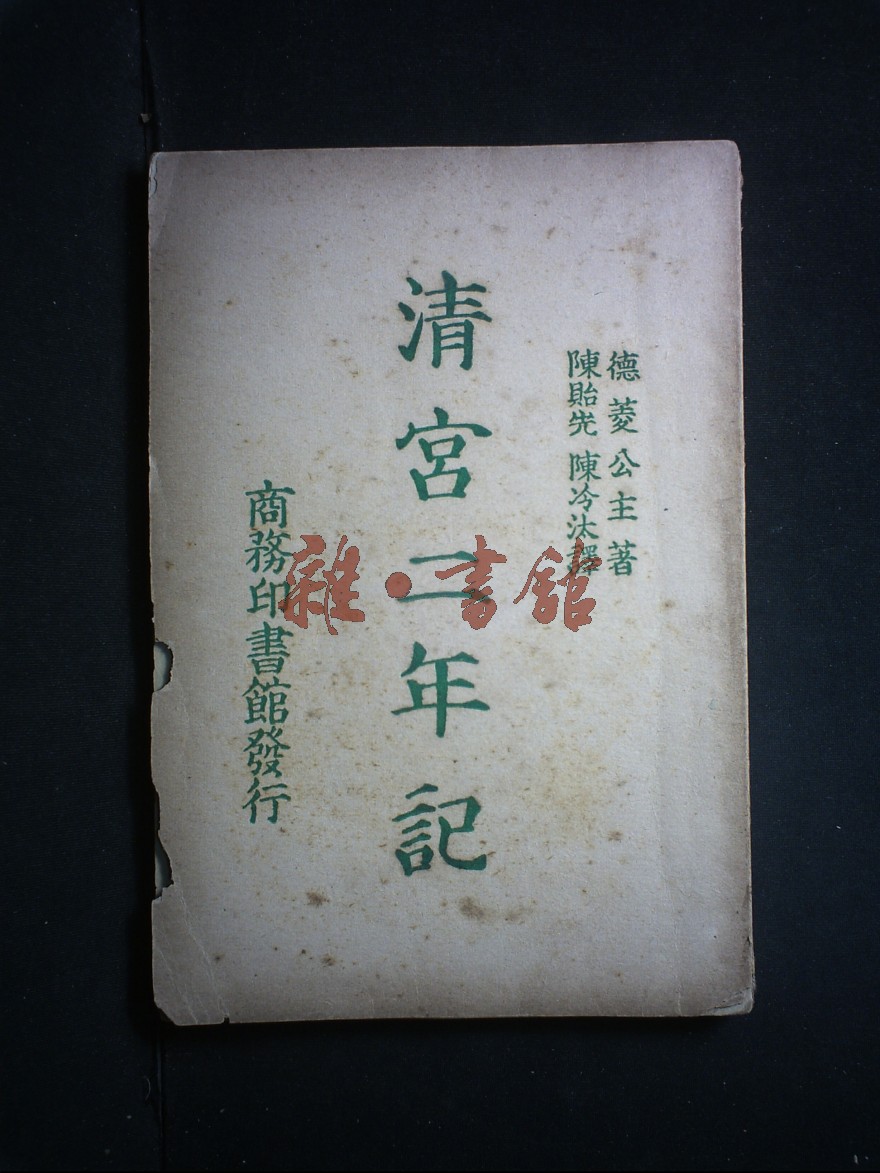 德菱公主著
陳貽先 陳冷汰譯
清宮二年記
商務印書館發行
雜·書館